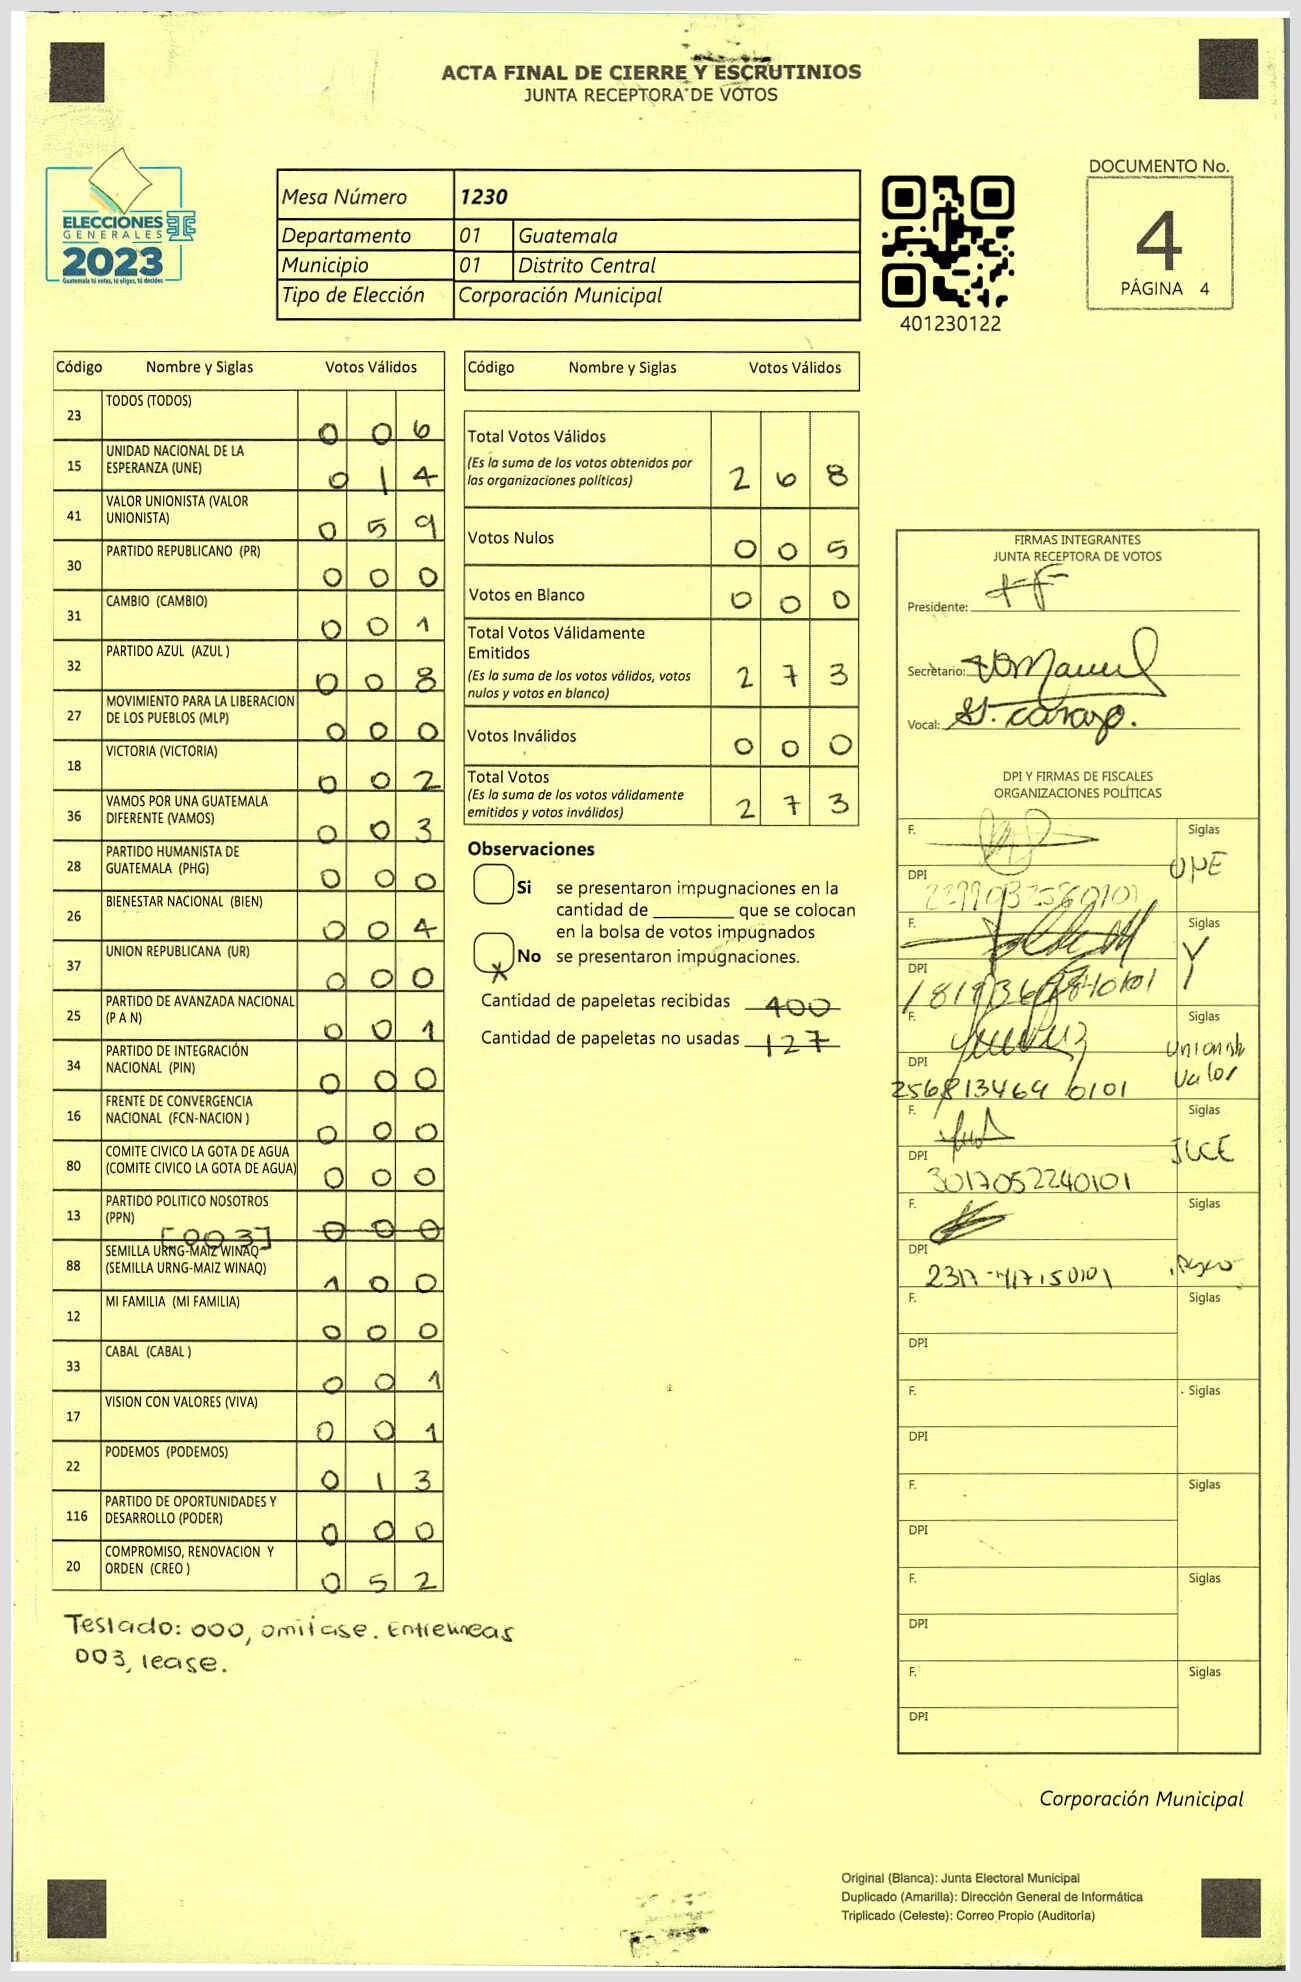 ACTA FINAL DE CIERRE Y ESCRUTINIOS
JUNTA RECEPTORA DE VOTOS
ELECCIONES
GENERALES
2023
Guatemala tú votas, tú eliges, tú decides
Mesa Número 1230
Departamento 01 Guatemala
Municipio 01 Distrito Central
Tipo de Elección Corporación Municipal
401230122
DOCUMENTO No.
4
PÁGINA 4
Código Nombre y Siglas Votos Válidos
23 TODOS (TODOS) 0 0 6
15 UNIDAD NACIONAL DE LA ESPERANZA (UNE) 0 1 4
41 VALOR UNIONISTA (VALOR UNIONISTA) 0 5 9
30 PARTIDO REPUBLICANO (PR) 0 0 0
31 CAMBIO (CAMBIO) 0 0 1
32 PARTIDO AZUL (AZUL ) 0 0 8
27 MOVIMIENTO PARA LA LIBERACION DE LOS PUEBLOS (MLP) 0 0 0
18 VICTORIA (VICTORIA) 0 0 2
36 VAMOS POR UNA GUATEMALA DIFERENTE (VAMOS) 0 0 3
28 PARTIDO HUMANISTA DE GUATEMALA (PHG) 0 0 0
26 BIENESTAR NACIONAL (BIEN) 0 0 4
37 UNION REPUBLICANA (UR) 0 0 0
25 PARTIDO DE AVANZADA NACIONAL (P A N) 0 0 1
34 PARTIDO DE INTEGRACIÓN NACIONAL (PIN) 0 0 0
16 FRENTE DE CONVERGENCIA NACIONAL (FCN-NACION ) 0 0 0
80 COMITE CIVICO LA GOTA DE AGUA (COMITE CIVICO LA GOTA DE AGUA) 0 0 0
13 PARTIDO POLITICO NOSOTROS (PPN) [003] 0 0 0
88 SEMILLA URNG-MAIZ WINAQ (SEMILLA URNG-MAIZ WINAQ) 1 0 0
12 MI FAMILIA (MI FAMILIA) 0 0 0
33 CABAL (CABAL ) 0 0 1
17 VISION CON VALORES (VIVA) 0 0 1
22 PODEMOS (PODEMOS) 0 1 3
116 PARTIDO DE OPORTUNIDADES Y DESARROLLO (PODER) 0 0 0
20 COMPROMISO, RENOVACION Y ORDEN (CREO ) 0 5 2
Testado: 000, omitase. Entrelineas
003, lease.
Código Nombre y Siglas Votos Válidos
Total Votos Válidos 2 6 8
(Es la suma de los votos obtenidos por
las organizaciones políticas)
Votos Nulos 0 0 5
Votos en Blanco 0 0 0
Total Votos Válidamente
Emitidos 2 7 3
(Es la suma de los votos válidos, votos
nulos y votos en blanco)
Votos Inválidos 0 0 0
Total Votos 2 7 3
(Es la suma de los votos válidamente
emitidos y votos inválidos)
Observaciones
Si se presentaron impugnaciones en la
cantidad de ________ que se colocan
en la bolsa de votos impugnados
No se presentaron impugnaciones.
Cantidad de papeletas recibidas 400
Cantidad de papeletas no usadas 127
FIRMAS INTEGRANTES
JUNTA RECEPTORA DE VOTOS
Presidente:
Secretario:
Vocal:
DPI Y FIRMAS DE FISCALES
ORGANIZACIONES POLÍTICAS
F. Siglas
DPI UNE
F. Siglas
DPI
F. Siglas
DPI Unionista
Valor
256813464 0101
F. Siglas
DPI
3017052240101
F. Siglas
DPI
F. Siglas
DPI
F. Siglas
DPI
F. Siglas
DPI
F. Siglas
DPI
F. Siglas
DPI
Corporación Municipal
Original (Blanca): Junta Electoral Municipal
Duplicado (Amarilla): Dirección General de Informática
Triplicado (Celeste): Correo Propio (Auditoría)